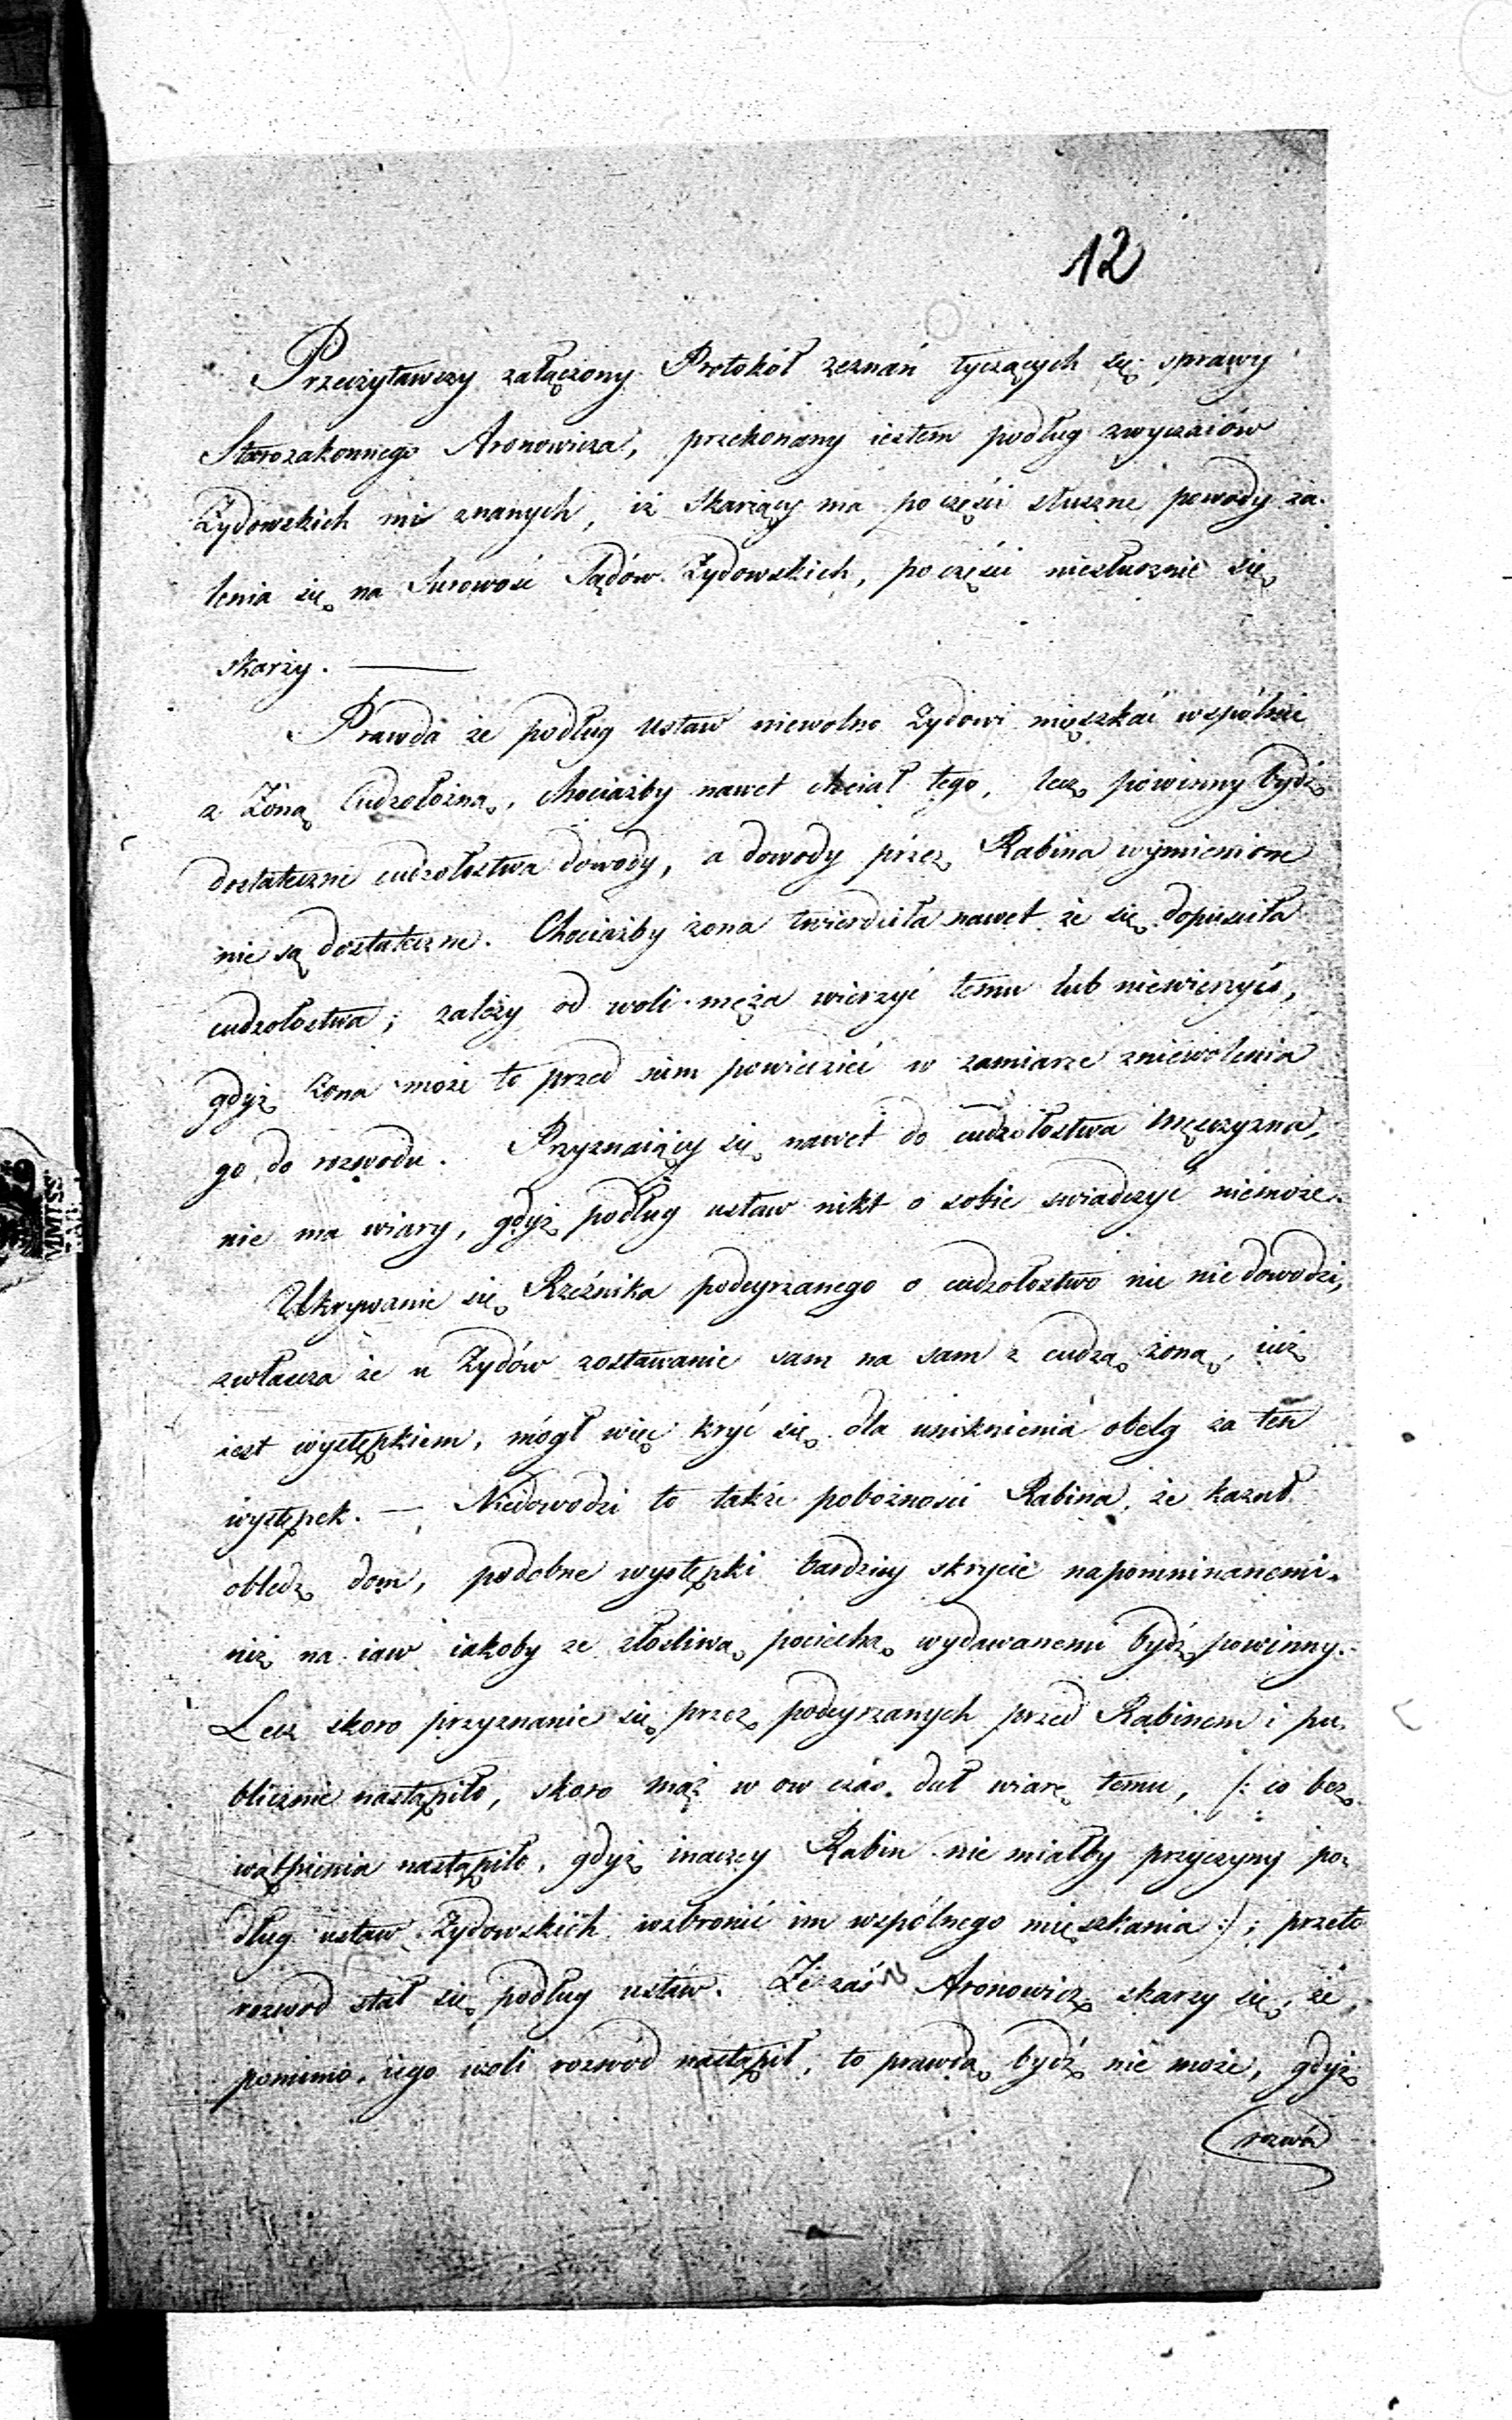 12
Przeczytawszy załączony Protokół zeznań tyczących się sprawy
Starozakonnego Aronowicza, przekonany iestem podług zwyczaiów
Żydowskich mi znanych, iż skarżący ma po części słuszne powody ża-
lenia się na Surowość Sądów Żydowskich, po części niesłusznie się
skarży. —
Prawda że podług ustaw niewolno Żydowi mięszkać wspólnie
z Żoną Cudzołożną, chociażby nawet chciał tego, lecz powinny bydź
dostateczne cudzołostwa dowody, a dowody przez Rabina wymienione
nie są dostateczne. Chociażby żona twierdziła nawet że się dopuściła
cudzołostwa; zależy od woli męża wierzyć temu lub niewierzyć,
gdyż żona może to przed nim powiedzieć w zamiarze zniewolenia
go do rozwodu. Przyznaiący się nawet do cudzołostwa Męszczyzna,
nie ma wiary, gdyż podług ustaw nikt o sobie swiadczyć niemoże.
Ukrywanie się Rzeźnika podeyrzanego o cudzołostwo nic nie dowodzi,
zwłascza że u Żydów zostawanie sam na sam z cudzą żoną, iuż
iest występkiem, mógł więc kryć się dla uniknienia obelg za ten
występek. — Niedowodzi to także pobożności Rabina, że kazał
obledz dom, podobne występki bardziey skrycie napomninanemi
niż na iaw iakoby ze złośliwą pociechą wydawanemi bydź powinny.
Lecz skoro przyznanie się przez podeyrzanych przed Rabinem i pu-
blicznie nastąpiło, skoro mąż w ow czas dał wiarę temu, /: co bez
wątpienia nastąpiło, gdyż inaczey Rabin nie miałby przyczyny po-
dług ustaw Żydowskich wzbronić im wspólnego mięszkania :/; przeto
rozwod stał się podług ustaw. Że zaś Aronowicz skarzy się, że
pomimo iego woli rozwod nastąpił, to prawdą bydź nie może, gdyż
rozwód